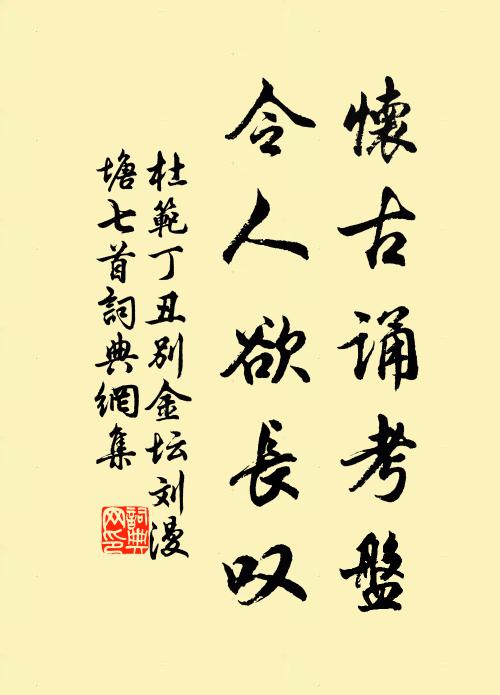 懷古诵考盤
令人欲長叹
杜範丁丑别金坛刘漫
塘七首詞典網集
詞典网印